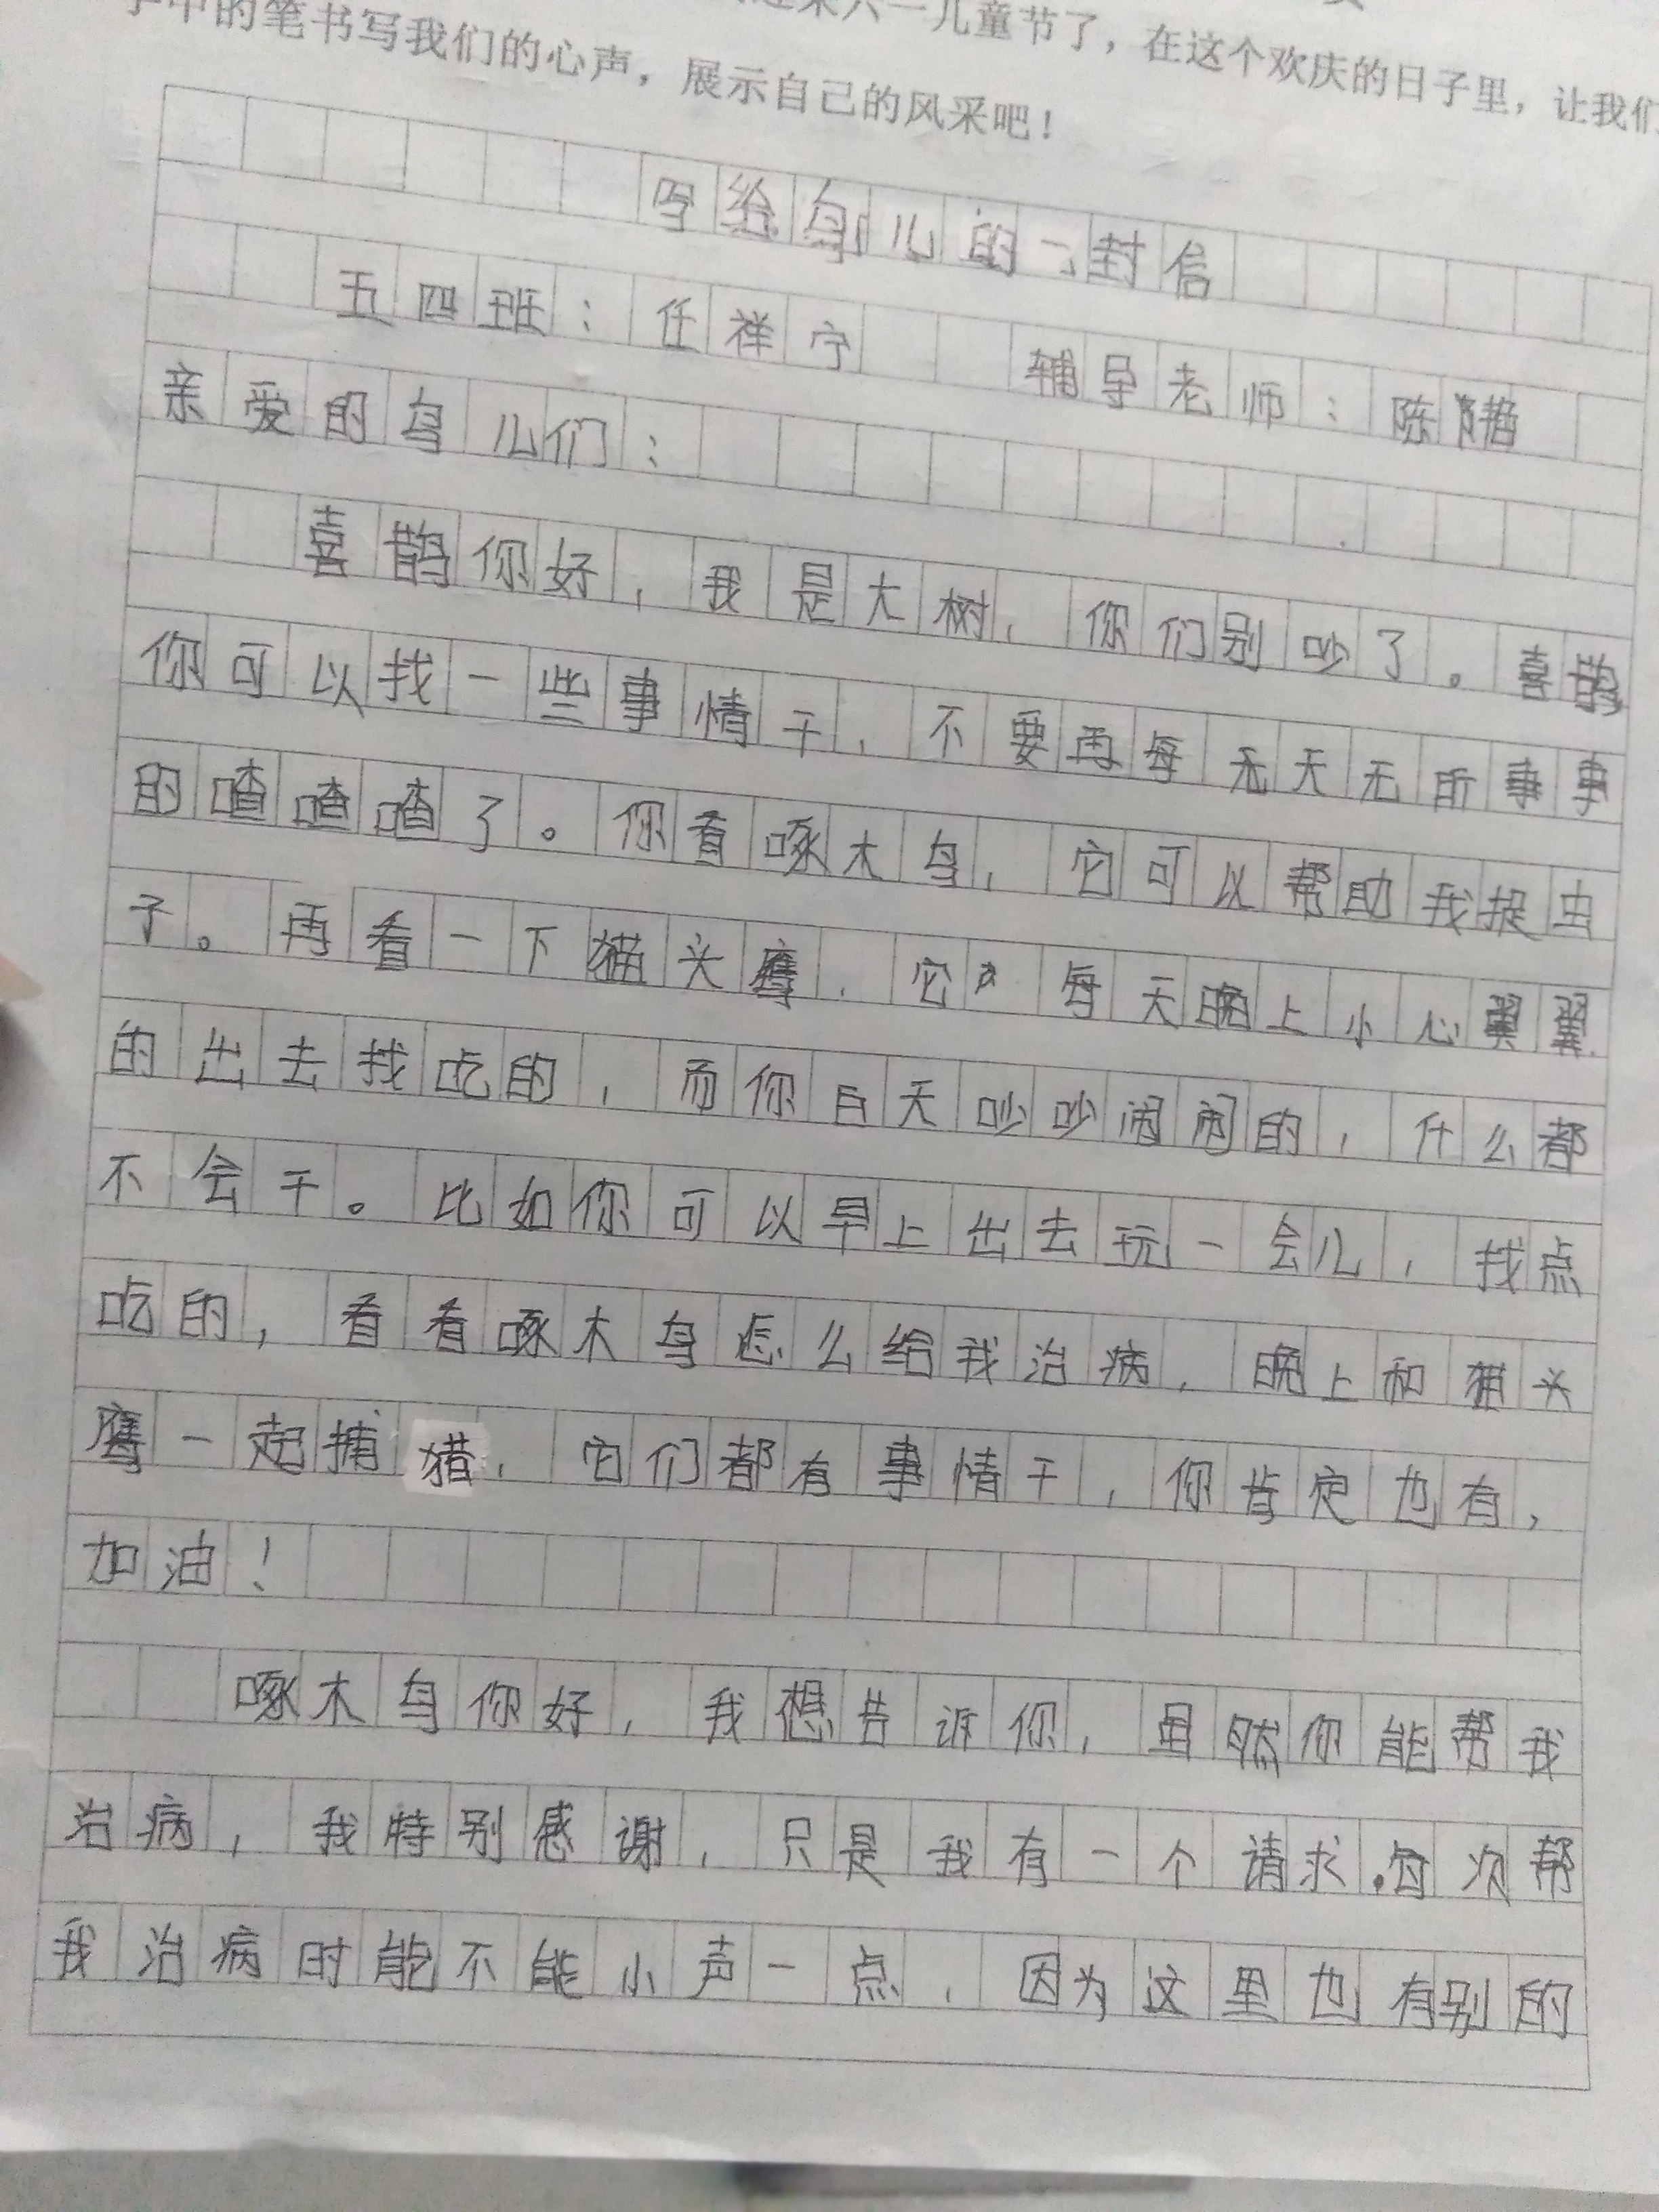 来六一儿童节了，在这个欢庆的日子里，让我们
中的笔书写我们的心声，展示自己的风采吧！
写给鸟儿的一封信
五四班：任祥宁 辅导老师：陈
亲爱的鸟儿们：
喜鹊你好，我是大树，你们别吵了。喜鹊
你可以找一些事情干，不要再每天无所事事
的喳喳喳了。你看啄木鸟，它可以帮助我捉虫
子。再看一下猫头鹰，它每天晚上小心翼翼
的出去找吃的，而你白天吵吵闹闹的，什么都
不会干。比如你可以早上出去玩一会儿，找点
吃的，看看啄木鸟怎么给我治病，晚上和猫头
鹰一起捕猎，它们都有事情干，你肯定也有，
加油！
啄木鸟你好，我想告诉你，虽然你能帮我
治病，我特别感谢，只是我有一个请求。每次帮
我治病时能不能小声一点，因为这里也有别的